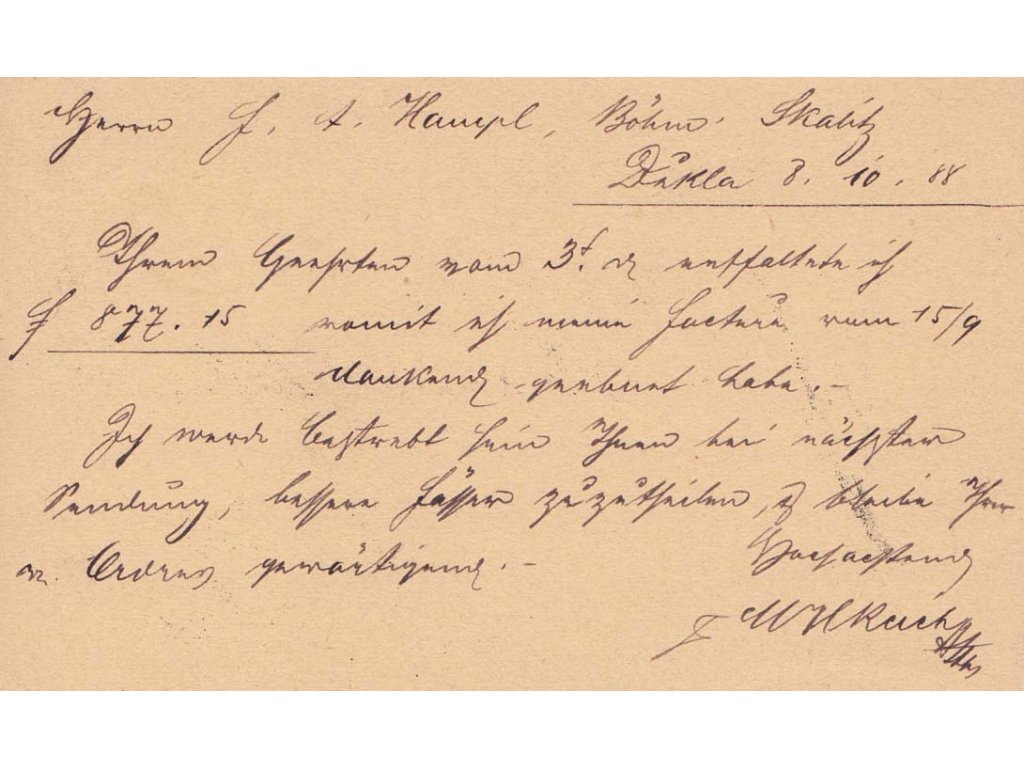 Herrn J. A. Hampl, Böhm. Skalitz
Dukla 8. 10. 88
Ihrem Geehrten vom 3t. d entfaltete ich
f 877.15 womit ich meine Factura vom 15/9
dankend geebnet habe.-
Ich werde bestrebt sein Ihnen bei nächster
Sendung, bessere Fässer zuzutheilen, & bleibe Ihrer
w. Ordres gewärtigend.-
Hochachtend